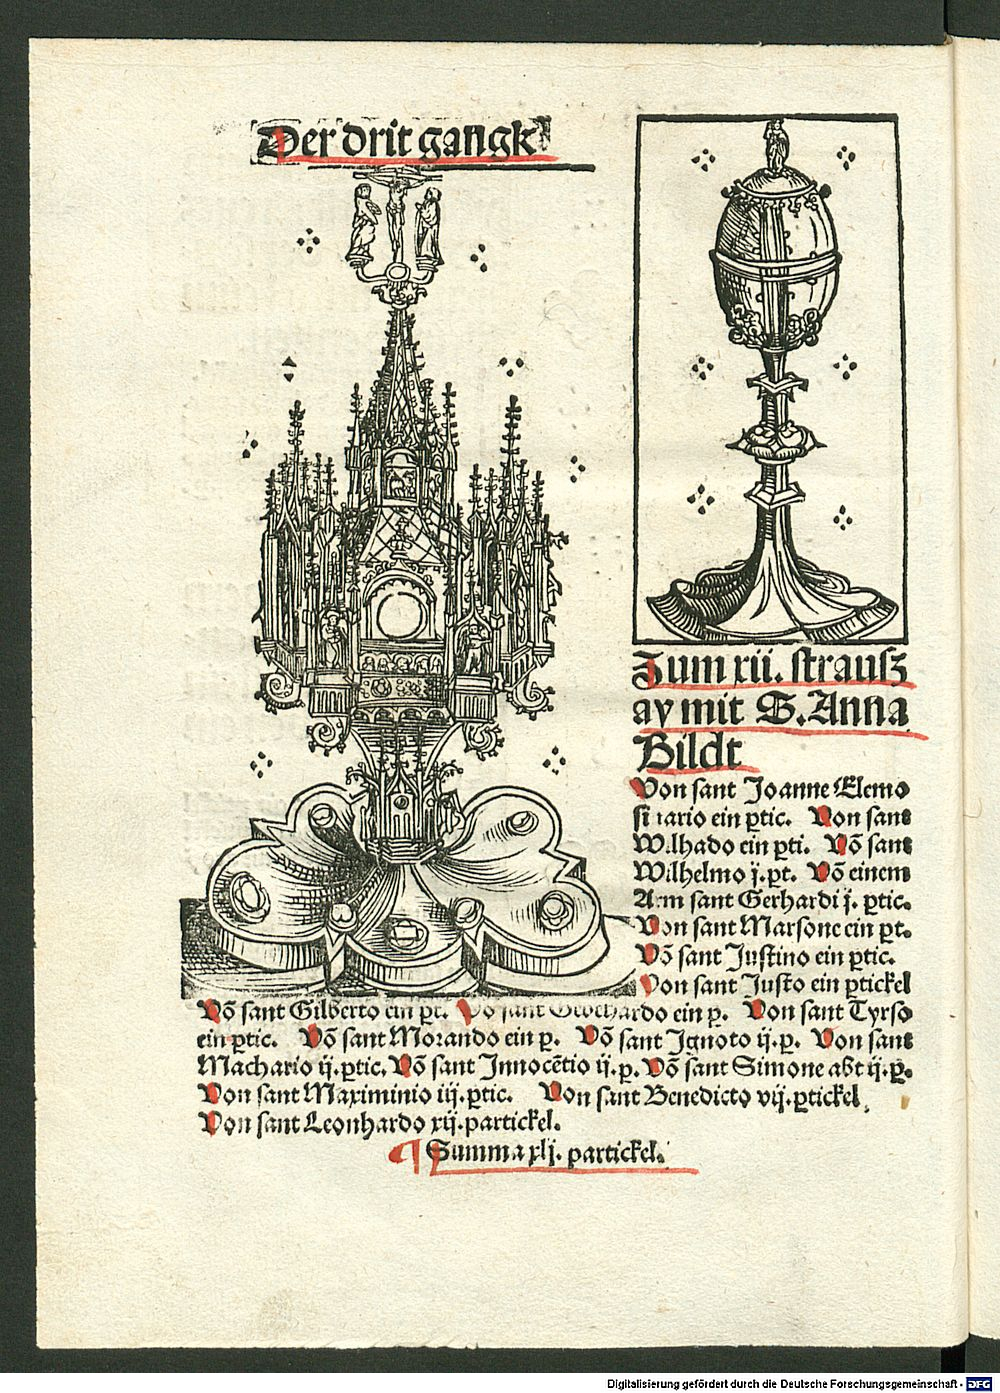 Der drit gangk
Zum xii. strausz
ay mit S. Anna
Bildt
Von sant Joanne Elemo
sinario ein ꝑtic. Von sant
Wilhado ein ꝑti. Võ sant
Wilhelmo j. pt. Võ einem
Arm sant Gerhardi j. ꝑtic.
Von sant Marsone ein ꝑt.
Võ sant Justino ein ꝑtic.
Von sant Justo ein ꝑtickel
Võ sant Gilberto ein ꝑt. Võ sant Gebehardo ein ꝑ. Von sant Tyrso
ein ꝑtic. Võ sant Morando ein ꝑ. Võ sant Ignoto ij. ꝑ. Von sant
Machario ij. ꝑtic. Võ sant Innocẽtio ij. ꝑ. Võ sant Simone abt ij. ꝑ.
Von sant Maximinio iij. ꝑtic. Von sant Benedicto vij. ꝑtickel.
Von sant Leonhardo xij. partickel.
¶ Summa xlj. partickel.
Digitalisierung gefördert durch die Deutsche Forschungsgemeinschaft - DFG